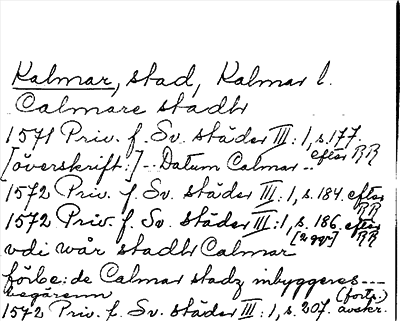 Kalmar, stad, Kalmar l.
Calmare stadh
1571 Priv. f. Sv. städer III:1, s. 177.
efter RR
[överskrift:] - Datum Calmar --
1572 Priv. f. Sv. städer III:1, s. 184. efter RR
1572 Priv. f. Sv. städer III:1, s. 186. efter RR
[2 ggr]
vdi wår stadh Calmar
förbe:de Calmar stadz inbyggeres ---
begärenn
(forts.)
1572 Priv. f. Sv. städer III:1, s. 207. avskr.